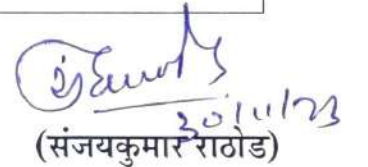 30/11/23
(संजयकुमार राठोड)